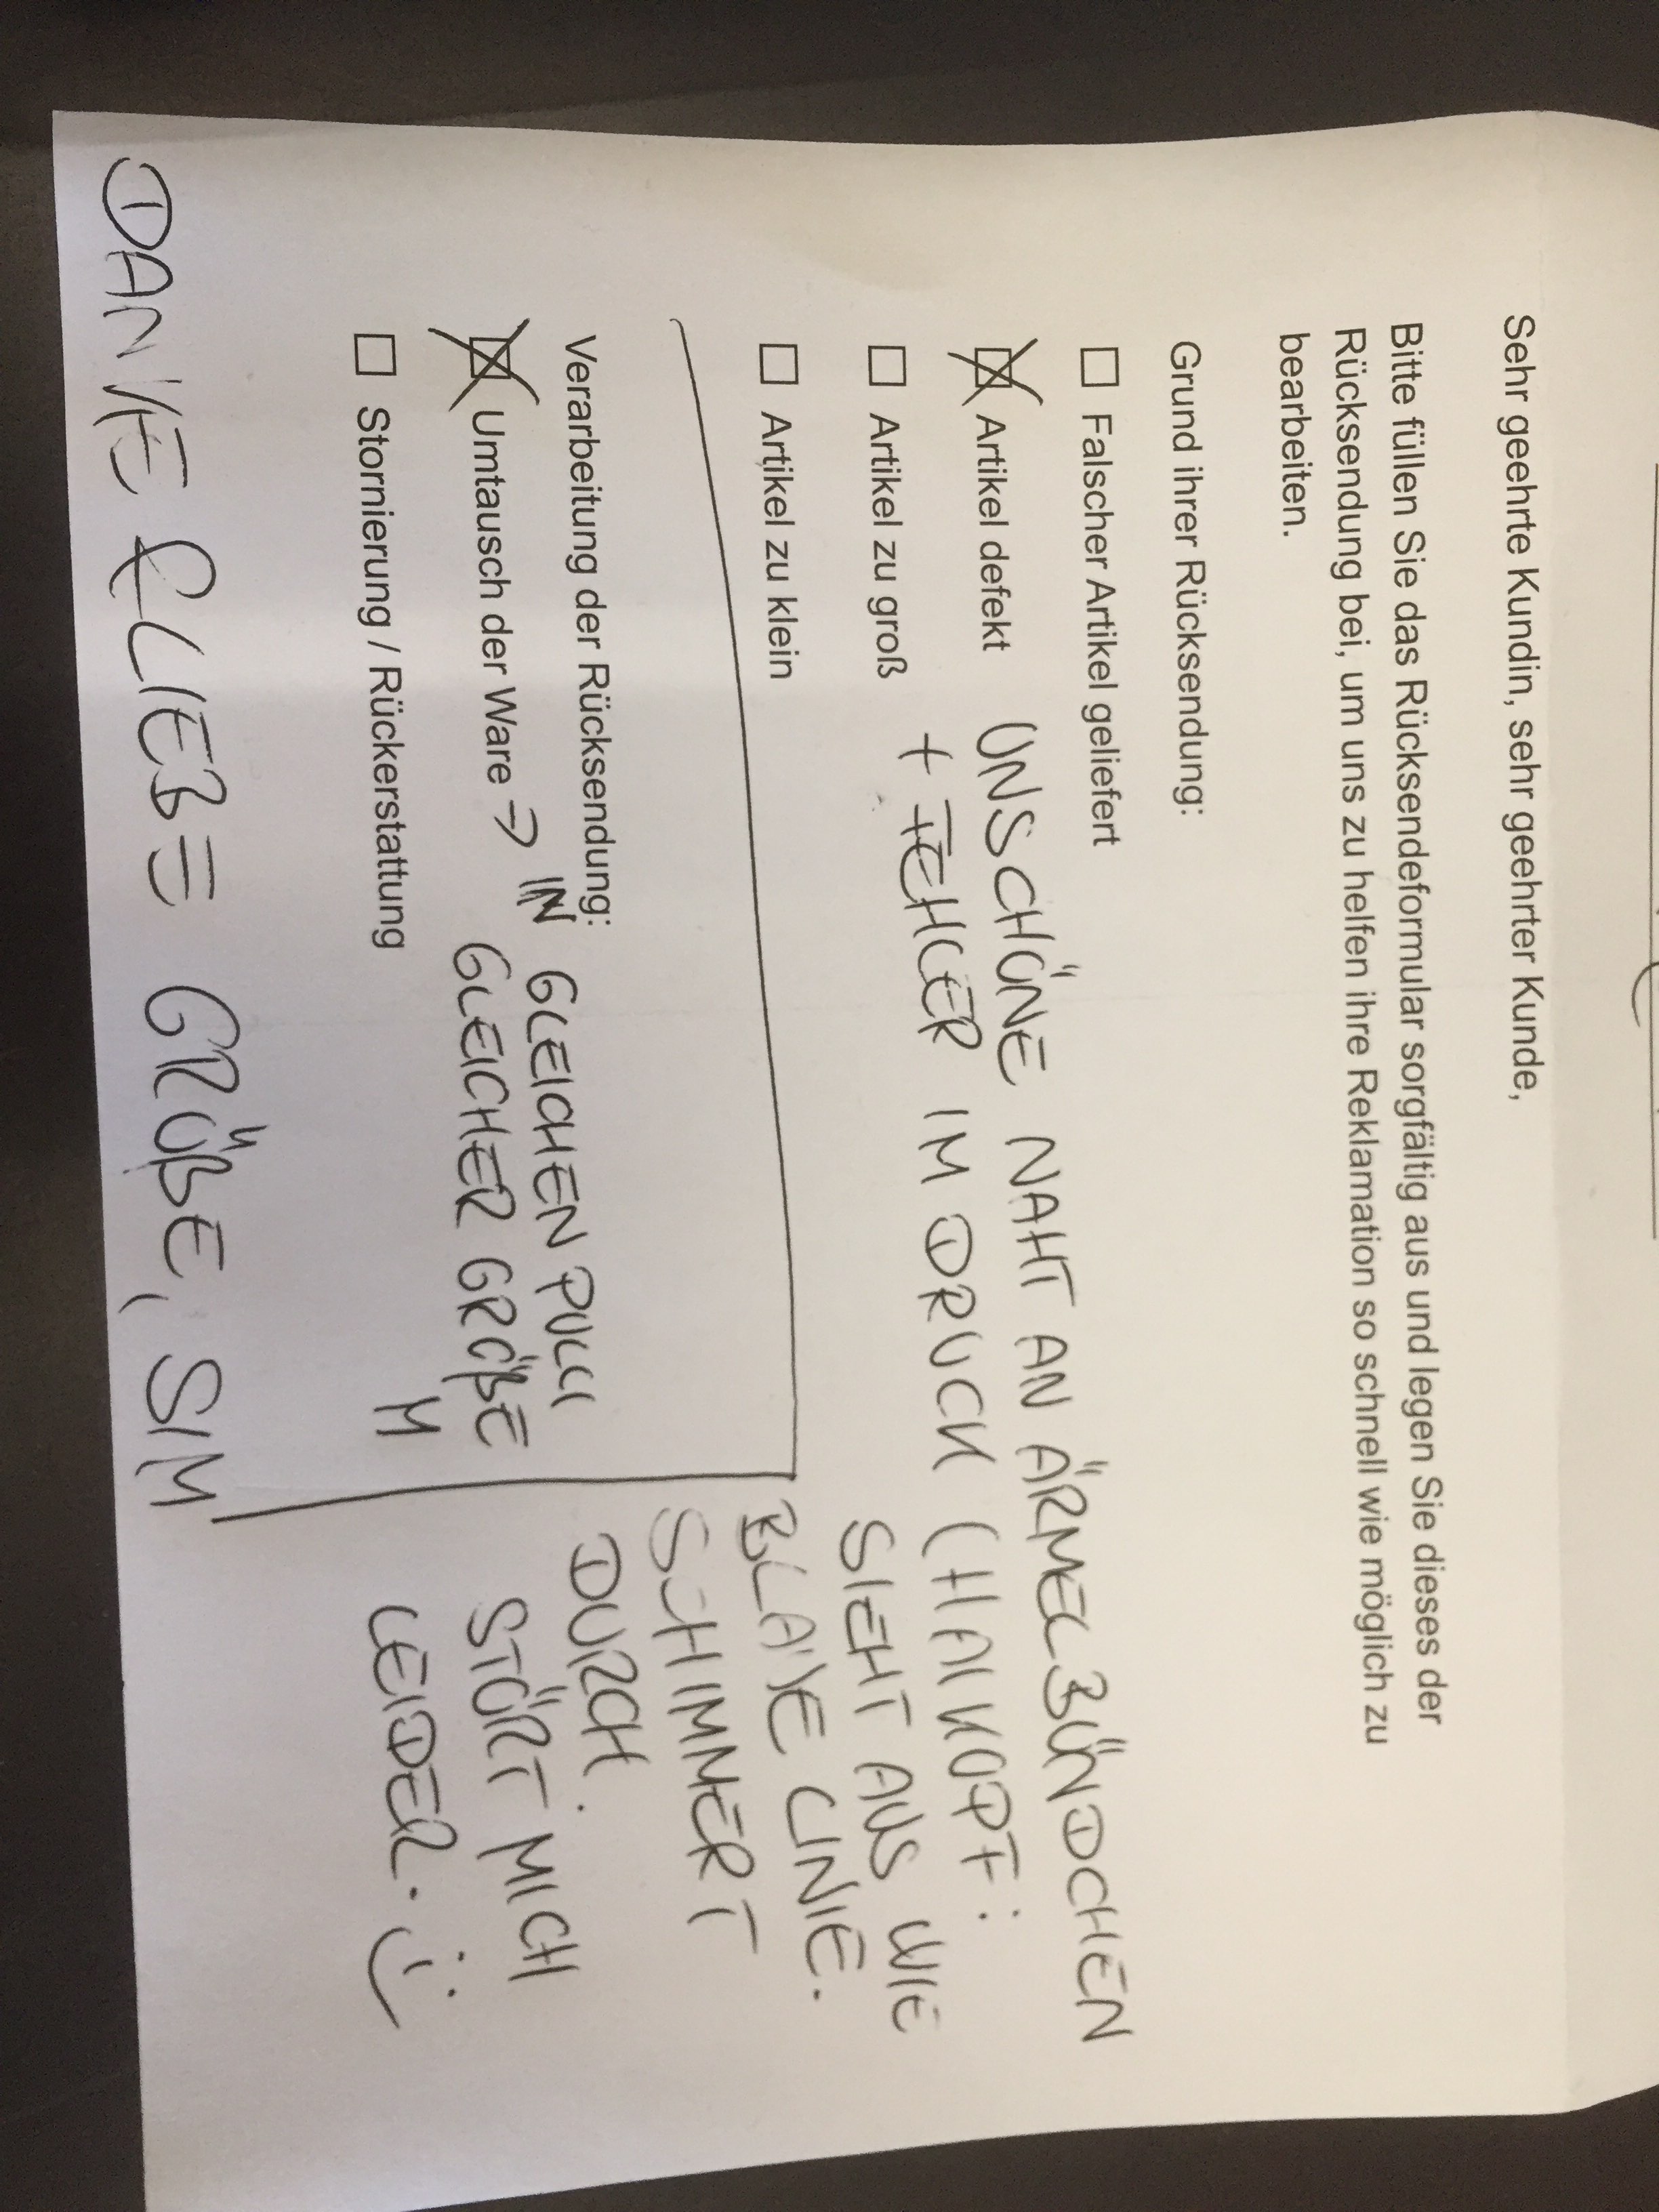 Sehr geehrte Kundin, sehr geehrter Kunde,
Bitte füllen Sie das Rücksendeformular sorgfältig aus und legen Sie dieses der
Rücksendung bei, um uns zu helfen ihre Reklamation so schnell wie möglich zu
bearbeiten.
Grund ihrer Rücksendung:
Falscher Artikel geliefert
Artikel defekt UNSCHÖNE NAHT AN ÄRMELBÜNDCHEN
+ FEHLER IM DRUCK (HAIKOPF:
Artikel zu groß
SIEHT AUS WIE
Artikel zu klein
BLAUE LINIE.
SCHIMMERT
DURCH.
STÖRT MICH
LEIDER. :)
Verarbeitung der Rücksendung:
Umtausch der Ware → IN GLEICHEN PULLI
GLEICHER GRÖßE
M
Stornierung / Rückerstattung
DANKE & LIEBE GRÜßE, SIM